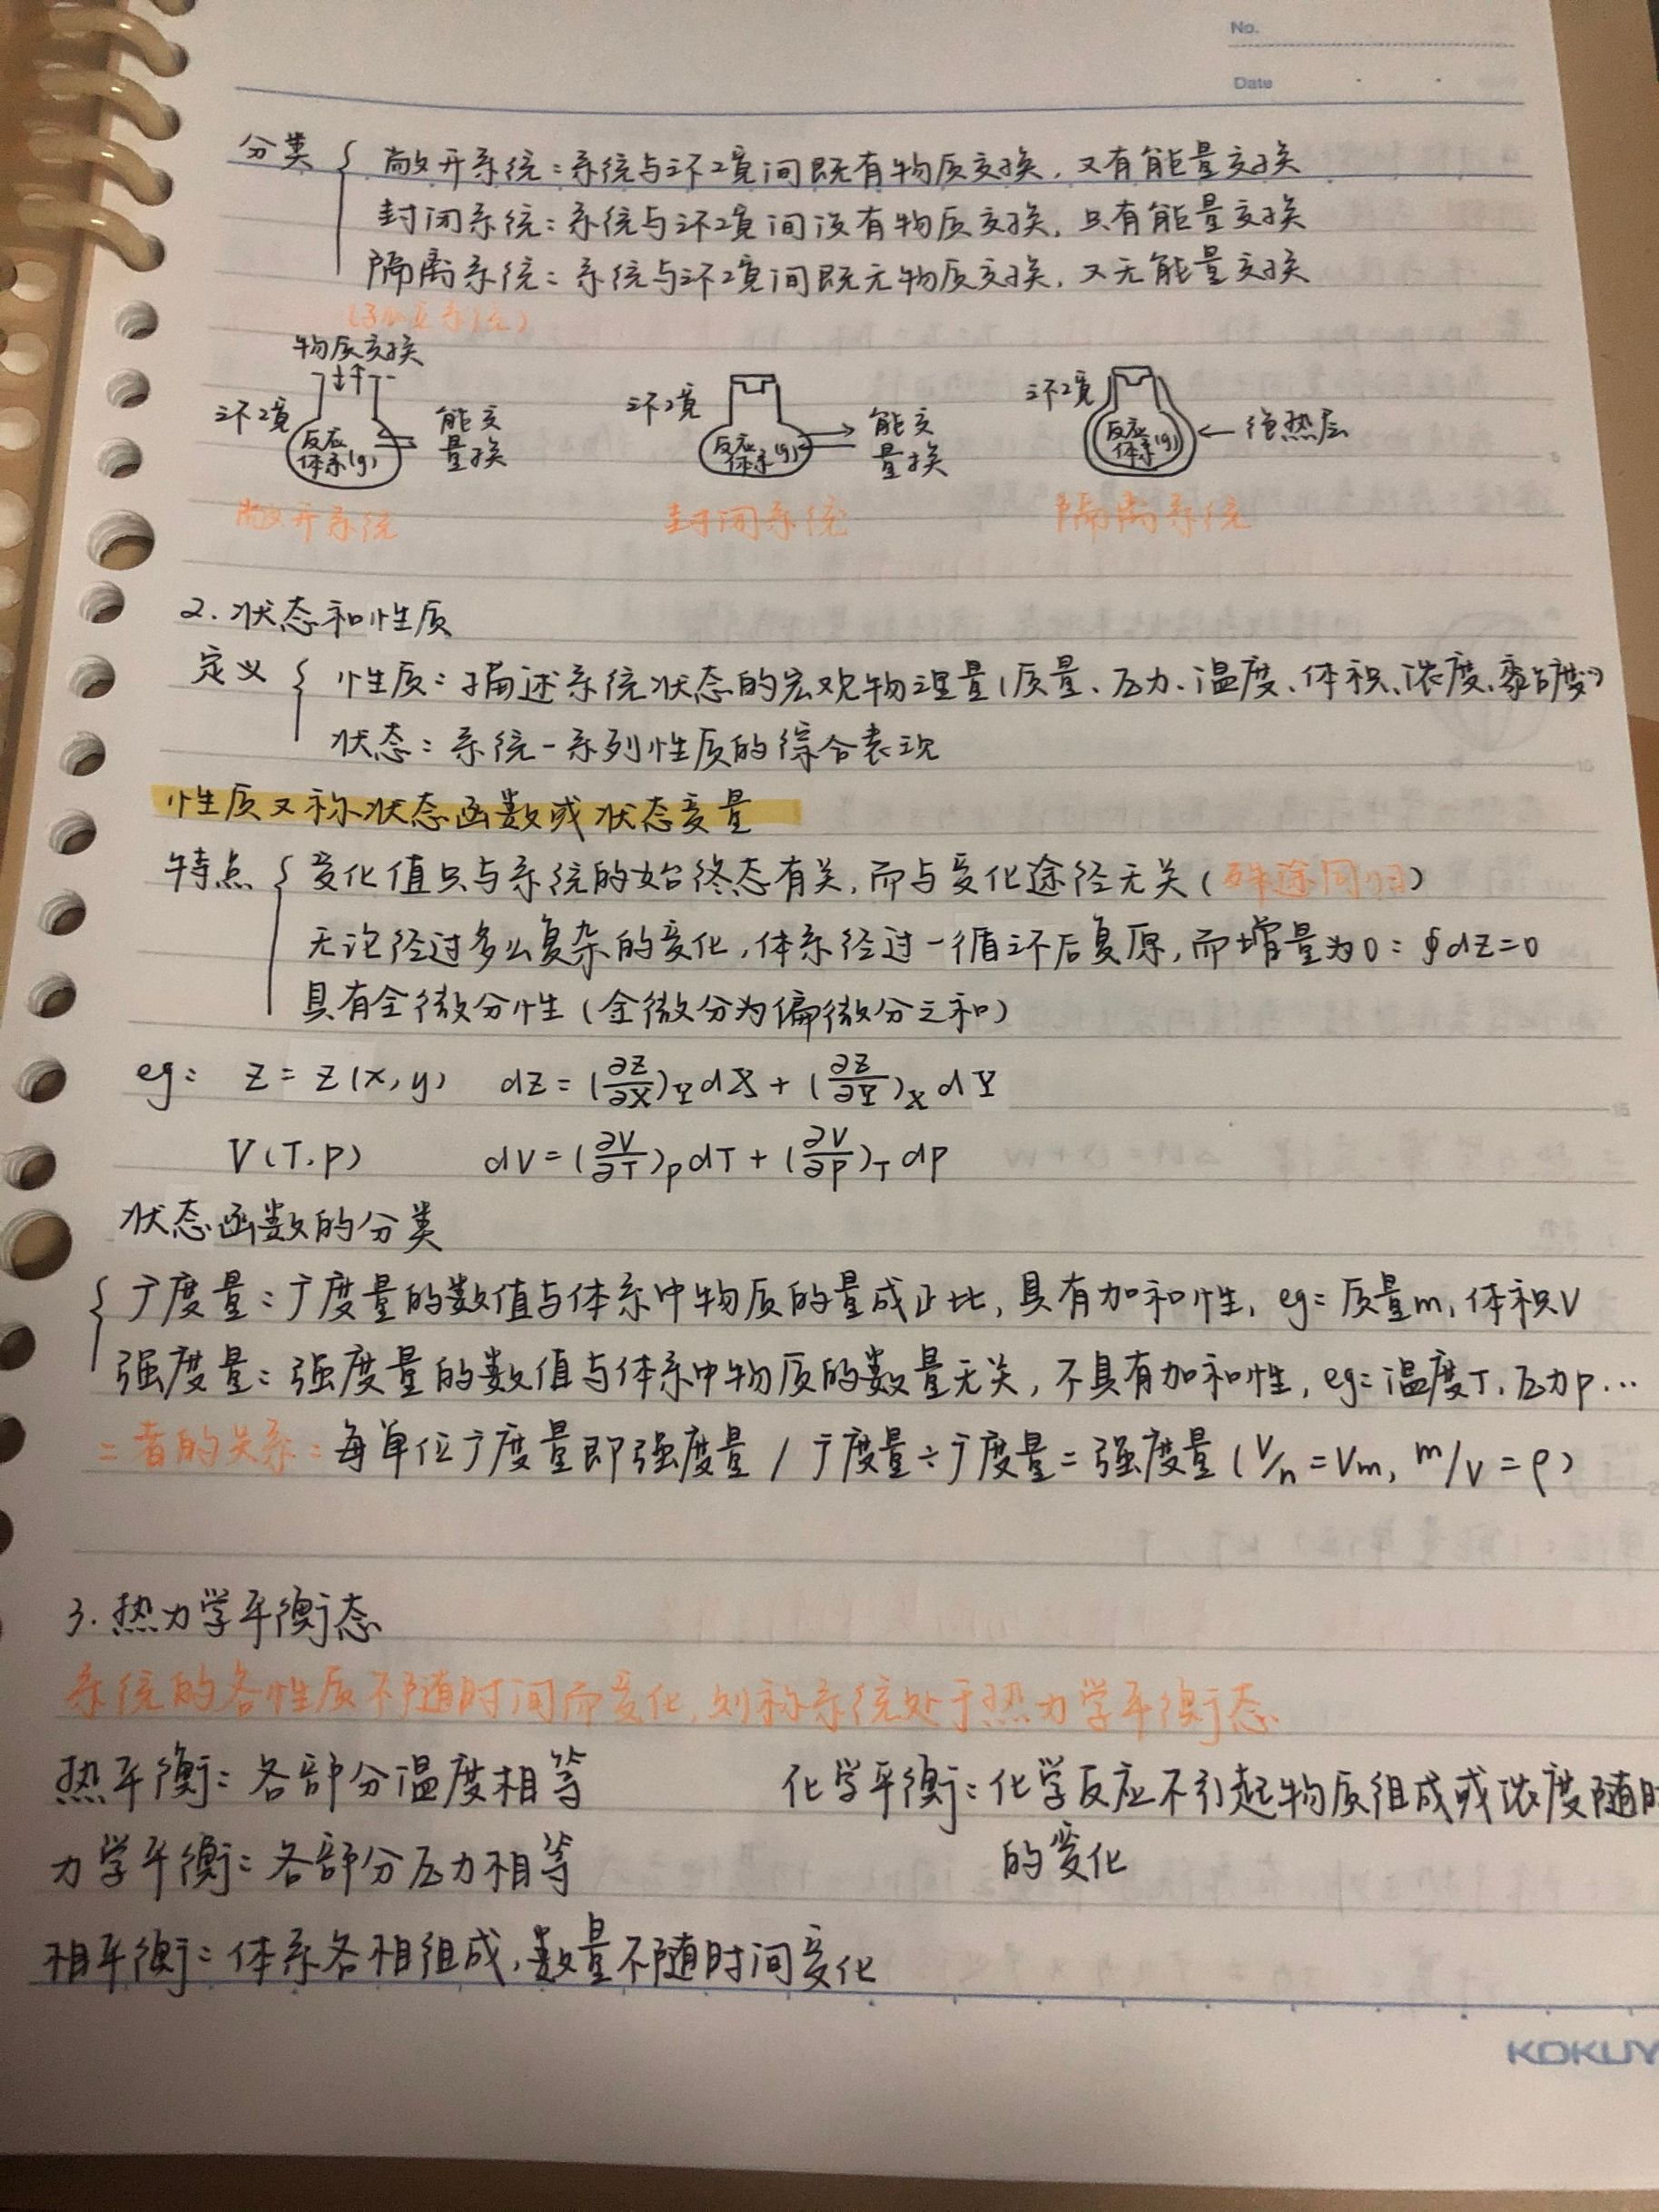 No.
Date
分类 { 敞开系统：系统与环境间既有物质交换，又有能量交换
封闭系统：系统与环境间没有物质交换，只有能量交换
隔离系统：系统与环境间既无物质交换，又无能量交换
(孤立系统)
物质交换
环境 反应体系(g) 能量交换
环境 反应体系(g) 能量交换
环境 反应体系(g) ← 绝热层
敞开系统 封闭系统 隔离系统
2. 状态和性质
定义 { 性质：描述系统状态的宏观物理量(质量、压力、温度、体积、浓度、黏度)
状态：系统一系列性质的综合表现
性质又称状态函数或状态变量
特点 { 变化值只与系统的始终态有关，而与变化途径无关(殊途同归)
无论经过多么复杂的变化，体系经过一循环后复原，而增量为0：∮dZ=0
具有全微分性(全微分为偏微分之和)
eg: Z = Z(x,y) dZ = (∂Z/∂X)_Y dX + (∂Z/∂Y)_X dY
V(T,P) dV = (∂V/∂T)_P dT + (∂V/∂P)_T dP
状态函数的分类
{ 广度量：广度量的数值与体系中物质的量成正比，具有加和性，eg: 质量m，体积V
强度量：强度量的数值与体系中物质的数量无关，不具有加和性，eg: 温度T，压力P...
二者的关系：每单位广度量即强度量 / 广度量÷广度量=强度量 (V/n = Vm, m/V = ρ)
3. 热力学平衡态
系统的各性质不随时间而变化，则称系统处于热力学平衡态
热平衡：各部分温度相等 化学平衡：化学反应不引起物质组成或浓度随时
的变化
力学平衡：各部分压力相等
相平衡：体系各相组成，数量不随时间变化
KOKUY